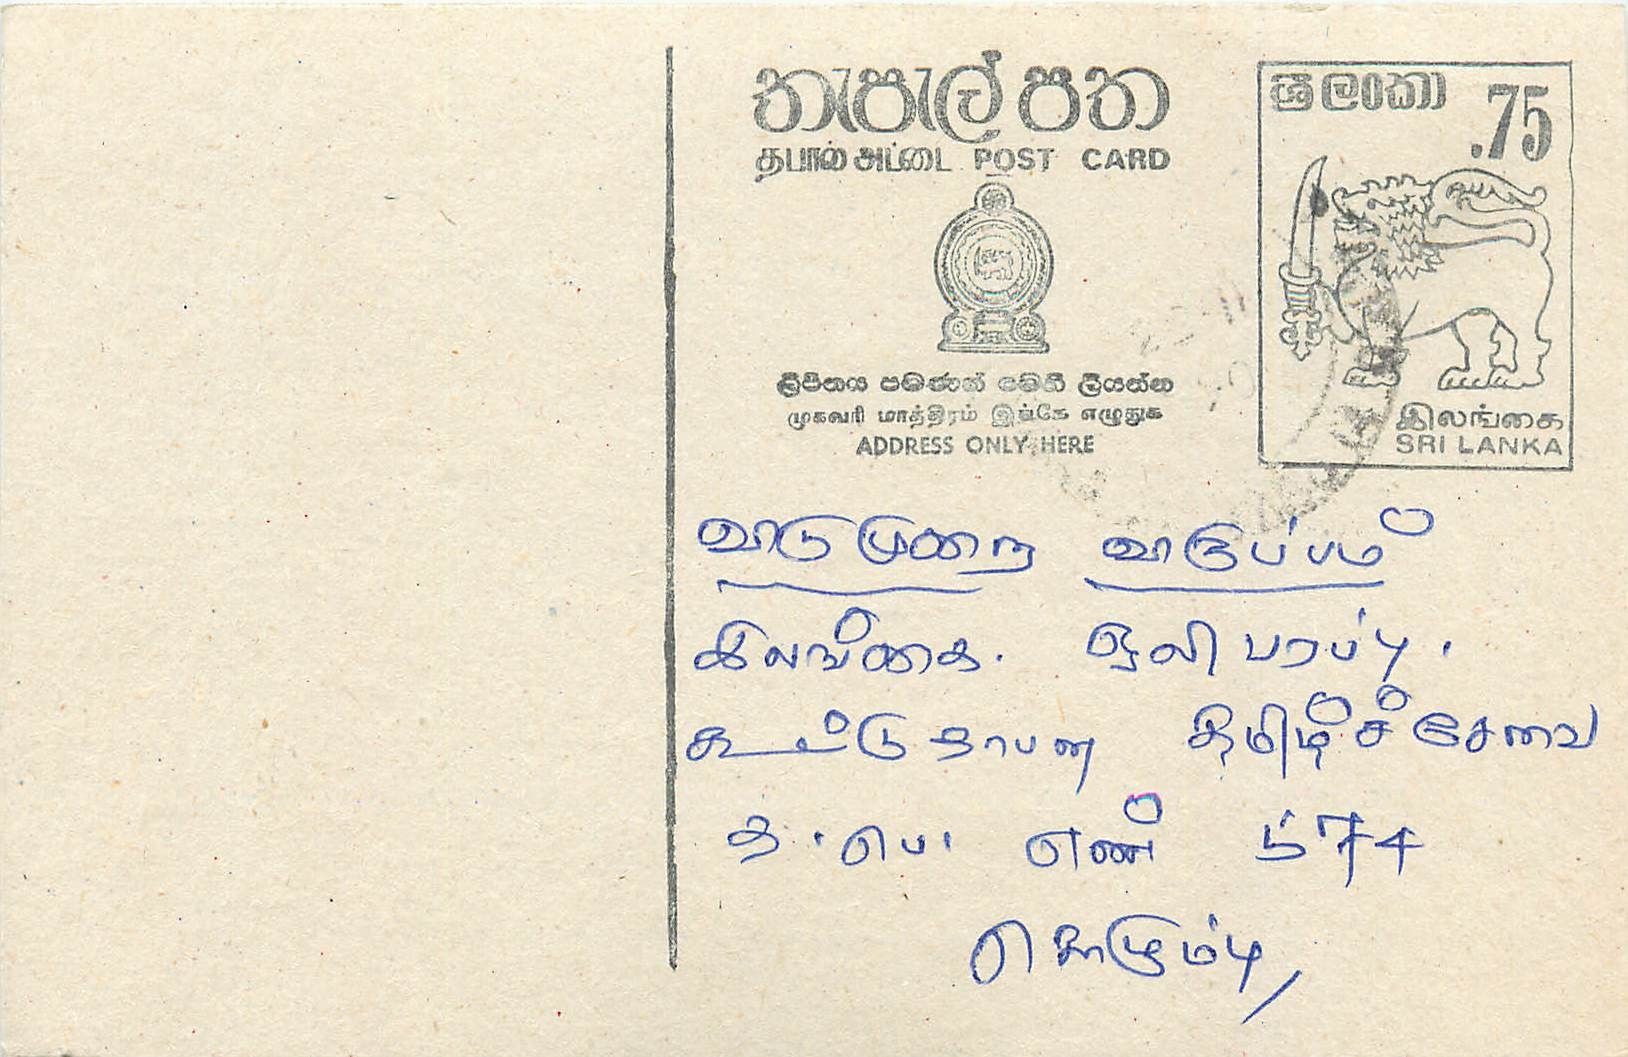 තැපැල් පත
தபால் அட்டை POST CARD
ශ්‍රී ලංකා .75
ලිපිනය පමණක් මෙහි ලියන්න
முகவரி மாத்திரம் இங்கே எழுதுக
ADDRESS ONLY HERE
இலங்கை
SRI LANKA
விடுமுறை விருப்பம்
இலங்கை. ஒலி பரப்பு.
கூட்டுதாபன தமிழ்ச் சேவை
த. பெ. எண் 574
கொழும்பு